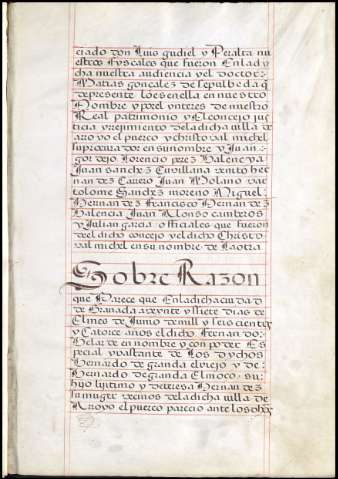 ciado don Luis gudiel y Peralta nu
estros fyscales que fueron Enlady
cha nuestra audiencia y el doctor
Matias gonçalez de sepulbeda q
de presente lo es en ella en nuestro
Nombre y por el ynteres de nuestro
Real patrimonio y El concejo jus
ticia y rrejimiento de la dicha villa de
arroyo el puerco y christobal michel
su procurador en su nombre y Juan
gor dejo lorencio perez Valençya
Juan sanchez Cuvillana benito her
nandez Carrero Juan Molano bar
tolome Sanchez moreno Miguel
Hernandez francisco Hernandez
Valencia Juan Alonso cambros
y Julian garcia officiales que fueron
de el dicho concejo y el dicho Christo
val michel en su nombre de La otra
Sobre Razon
que Parece que En la dicha ciudad
de Granada a veynte y siiete dias de
El mes de Junio de mill y seiscientos
y Catorce años el dicho fernando
Belarde en nombre y con poder Es
pecial y vastante de Los dychos
Bernardo de granda el viejo y de
Bernardo de granda El moço su
hijo lijitimo y de teresa Hernandez
su muger vecinos de la dicha villa de
Arroyo el puerco parecio ante los oydor